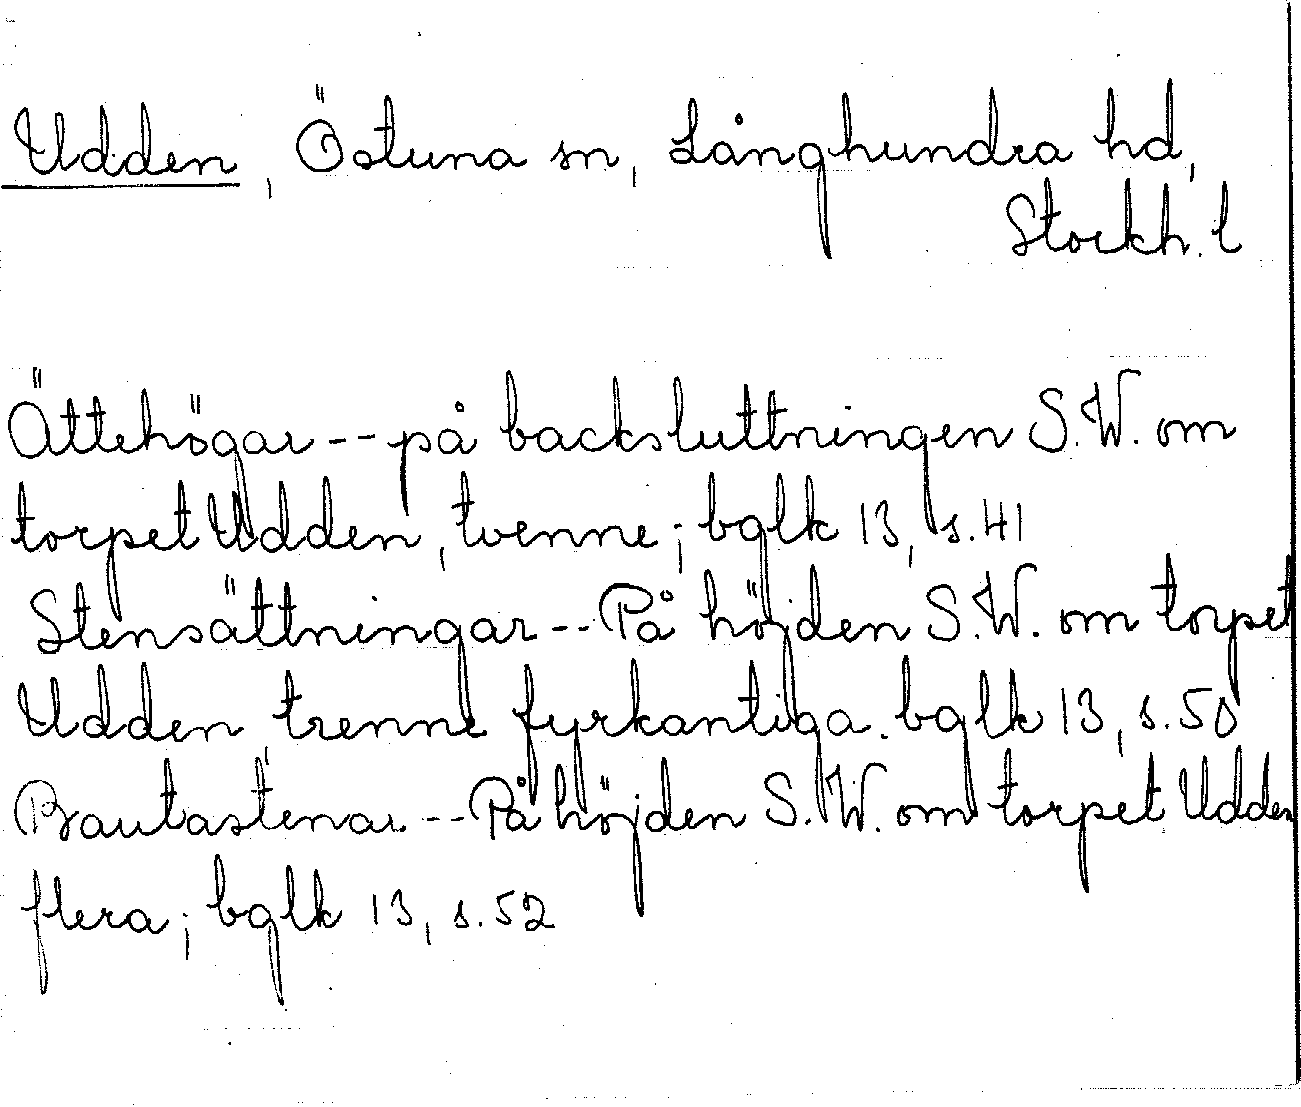 Udden, Östuna sn, Långhundra hd,
Stockh. l
Ättehögar -- på backsluttningen S.W. om
torpet Udden, tvenne; bglk 13, s. 41
Stensättningar -- På höjden S.W. om torpet
Udden, trenne fyrkantiga. bglk 13, s. 50
Bautastenar -- På höjden S.W. om torpet Udden
flera; bglk 13, s. 52